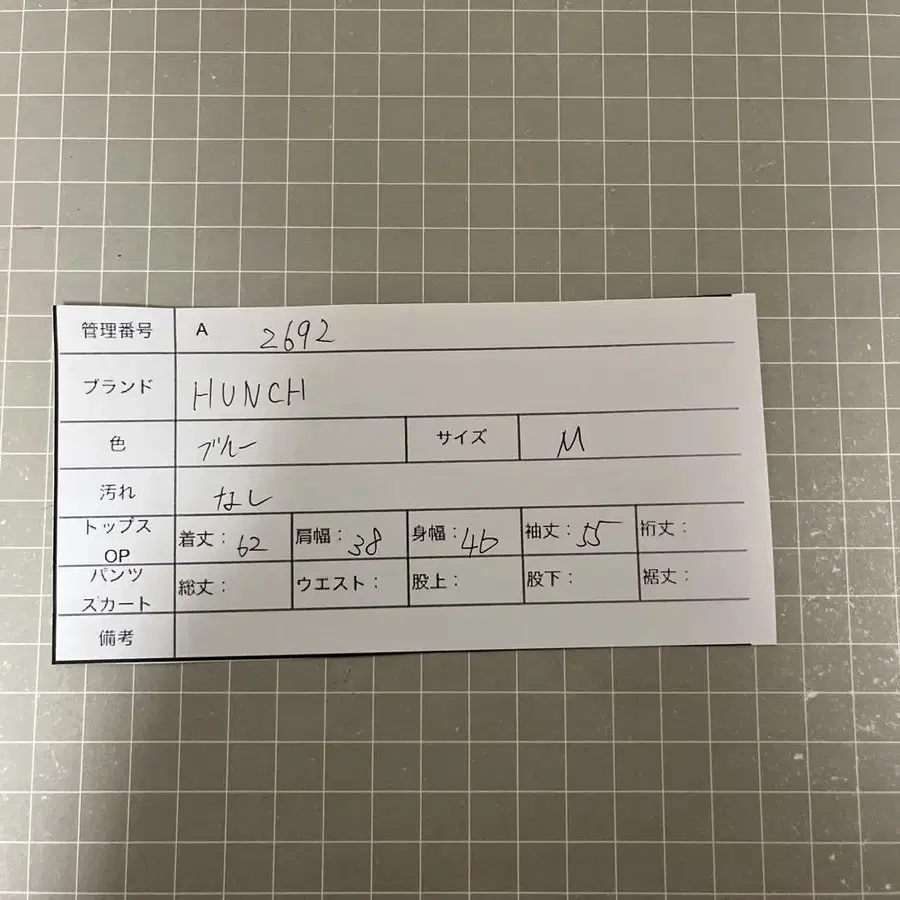 管理番号 A 2692
ブランド HUNCH
色 ブルー サイズ M
汚れ なし
トップス OP 着丈：62 肩幅：38 身幅：46 袖丈：55 裄丈：
パンツ スカート 総丈： ウエスト： 股上： 股下： 裾丈：
備考